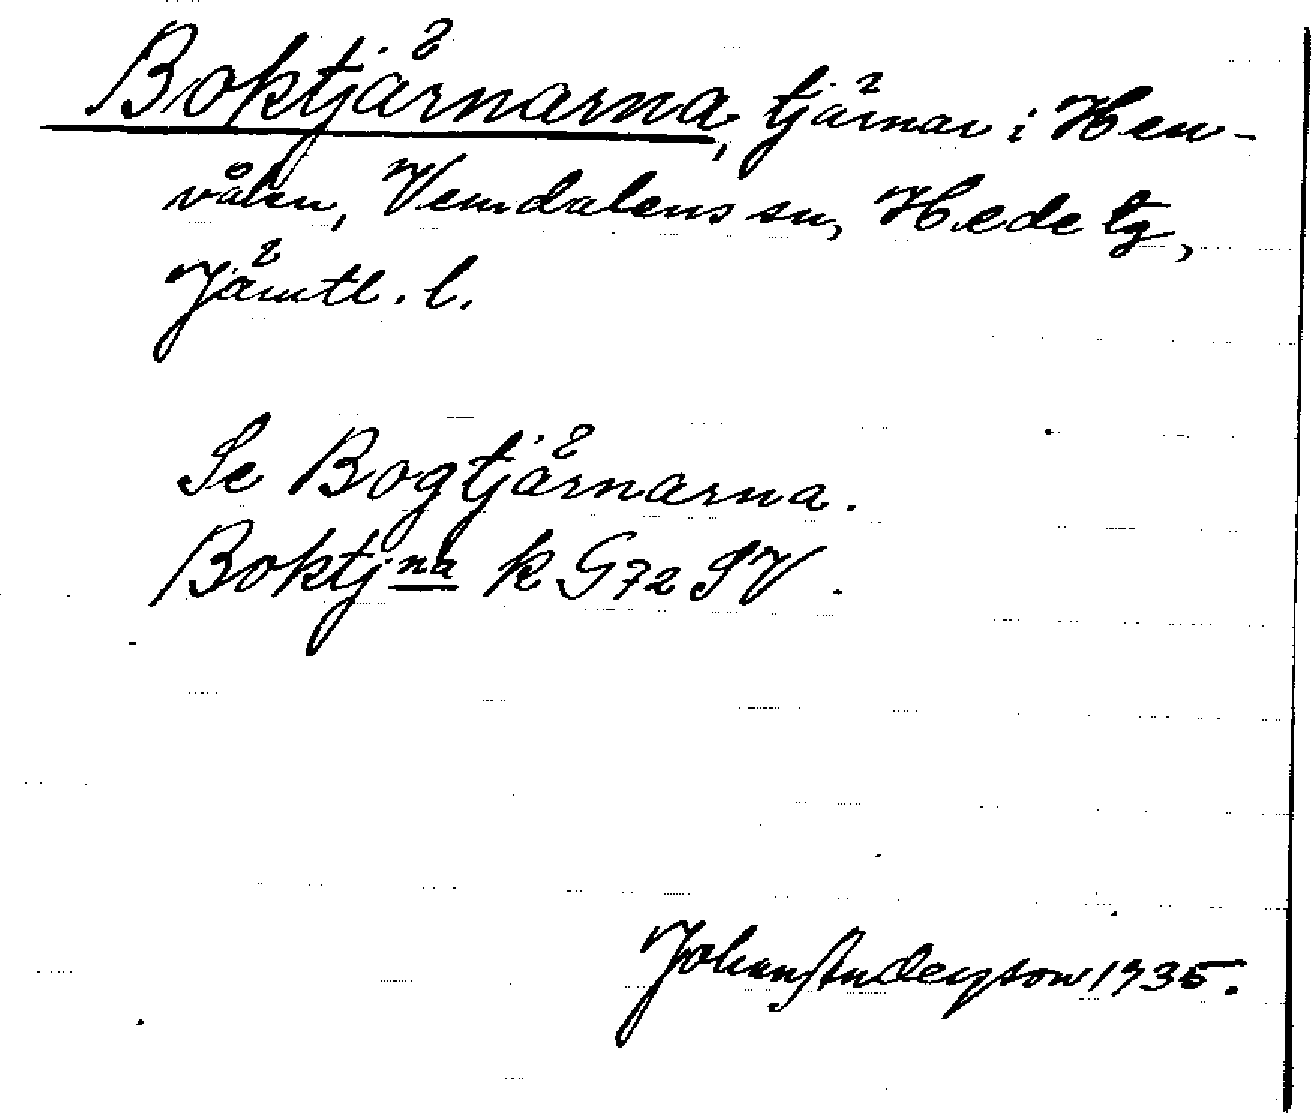 Boktjärnarna, tjärnar i Hen-
vålen, Vemdalens sn, Hede tg,
Jämtl. l.
Se Bogtjärnarna.
Boktjna k G72 SV.
Johan Anderson 1935.